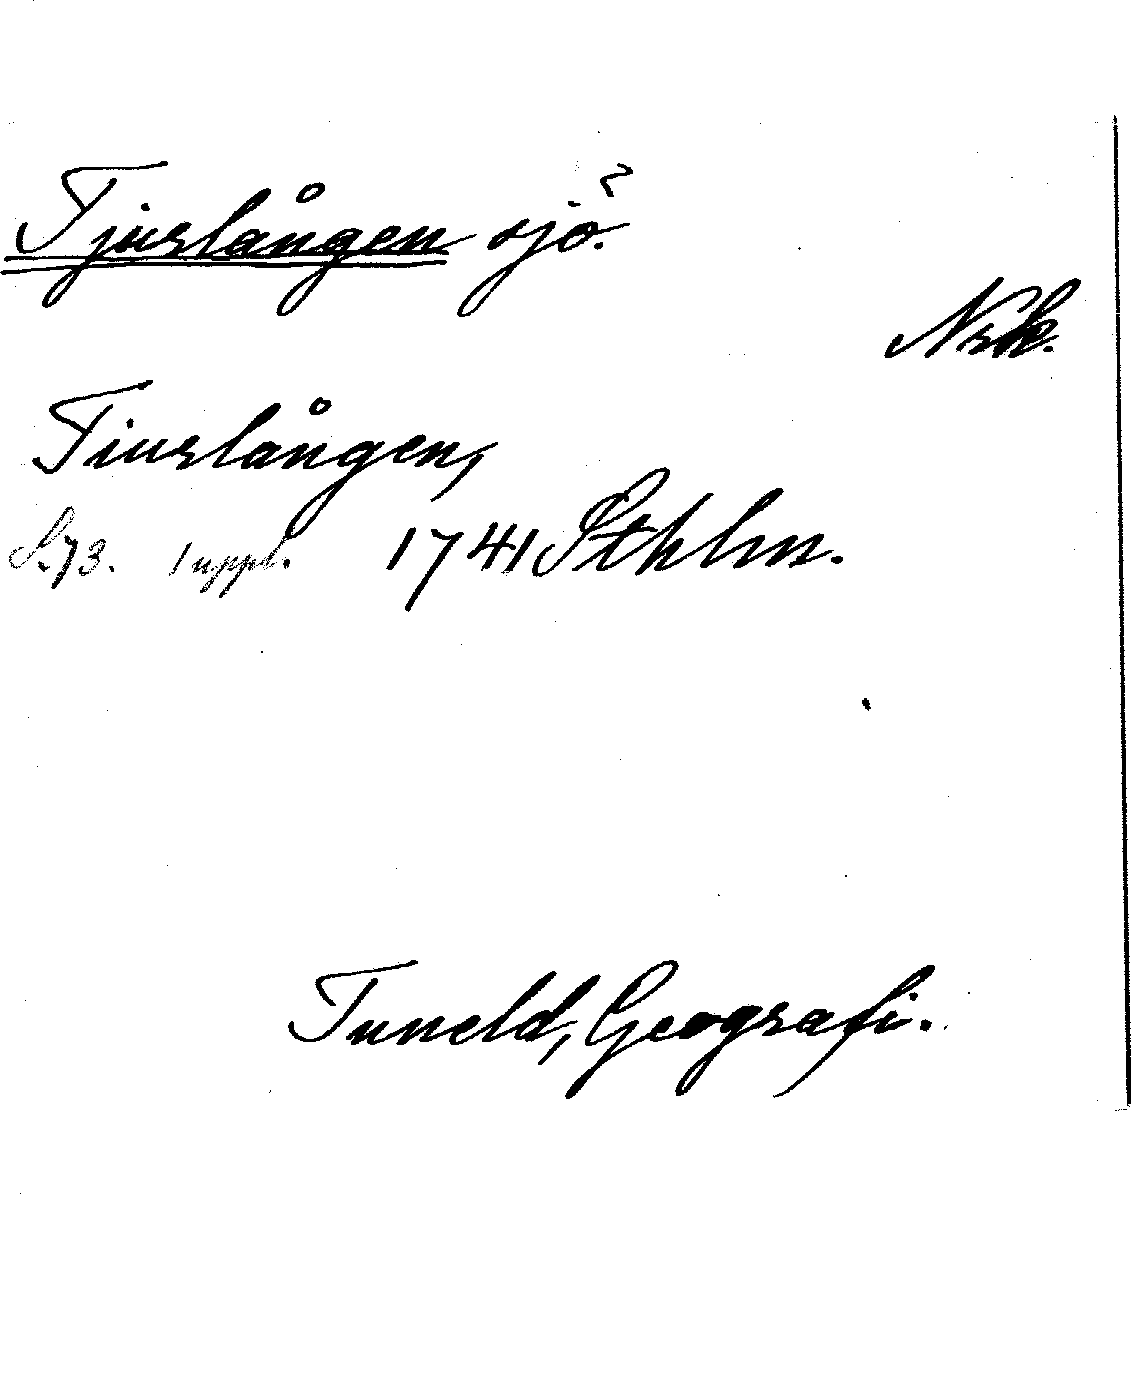 Tjurslången sjö.
Nrk.
Tiurslången,
S. 73. 1 uppl. 1741 Sthlm.
Tuneld, Geografi.